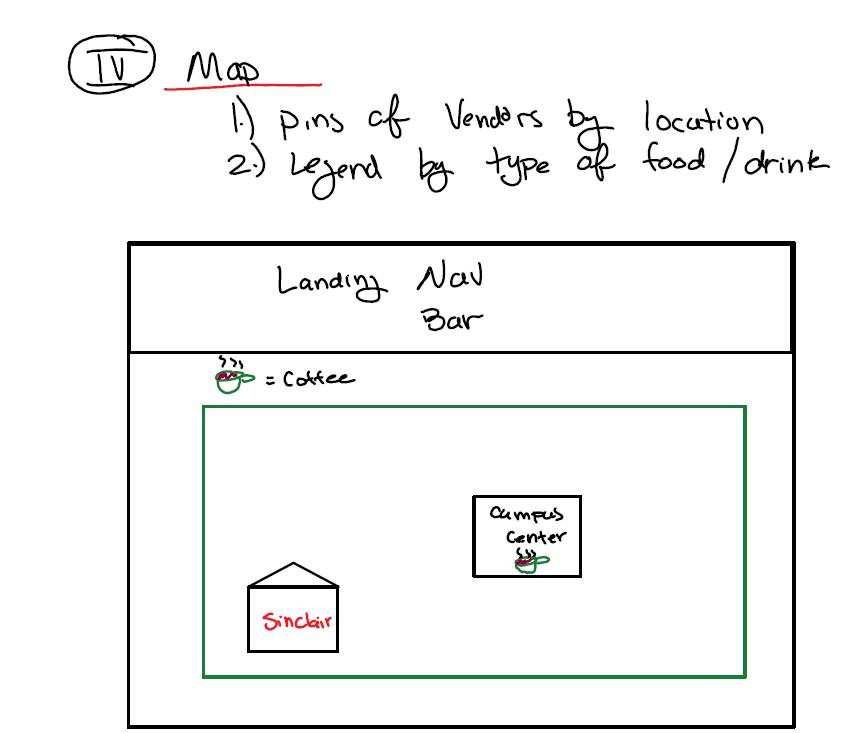 IV Map
1.) pins of Vendors by location
2.) Legend by type of food / drink
Landing Nav
Bar
= Coffee
Campus
Center
Sinclair